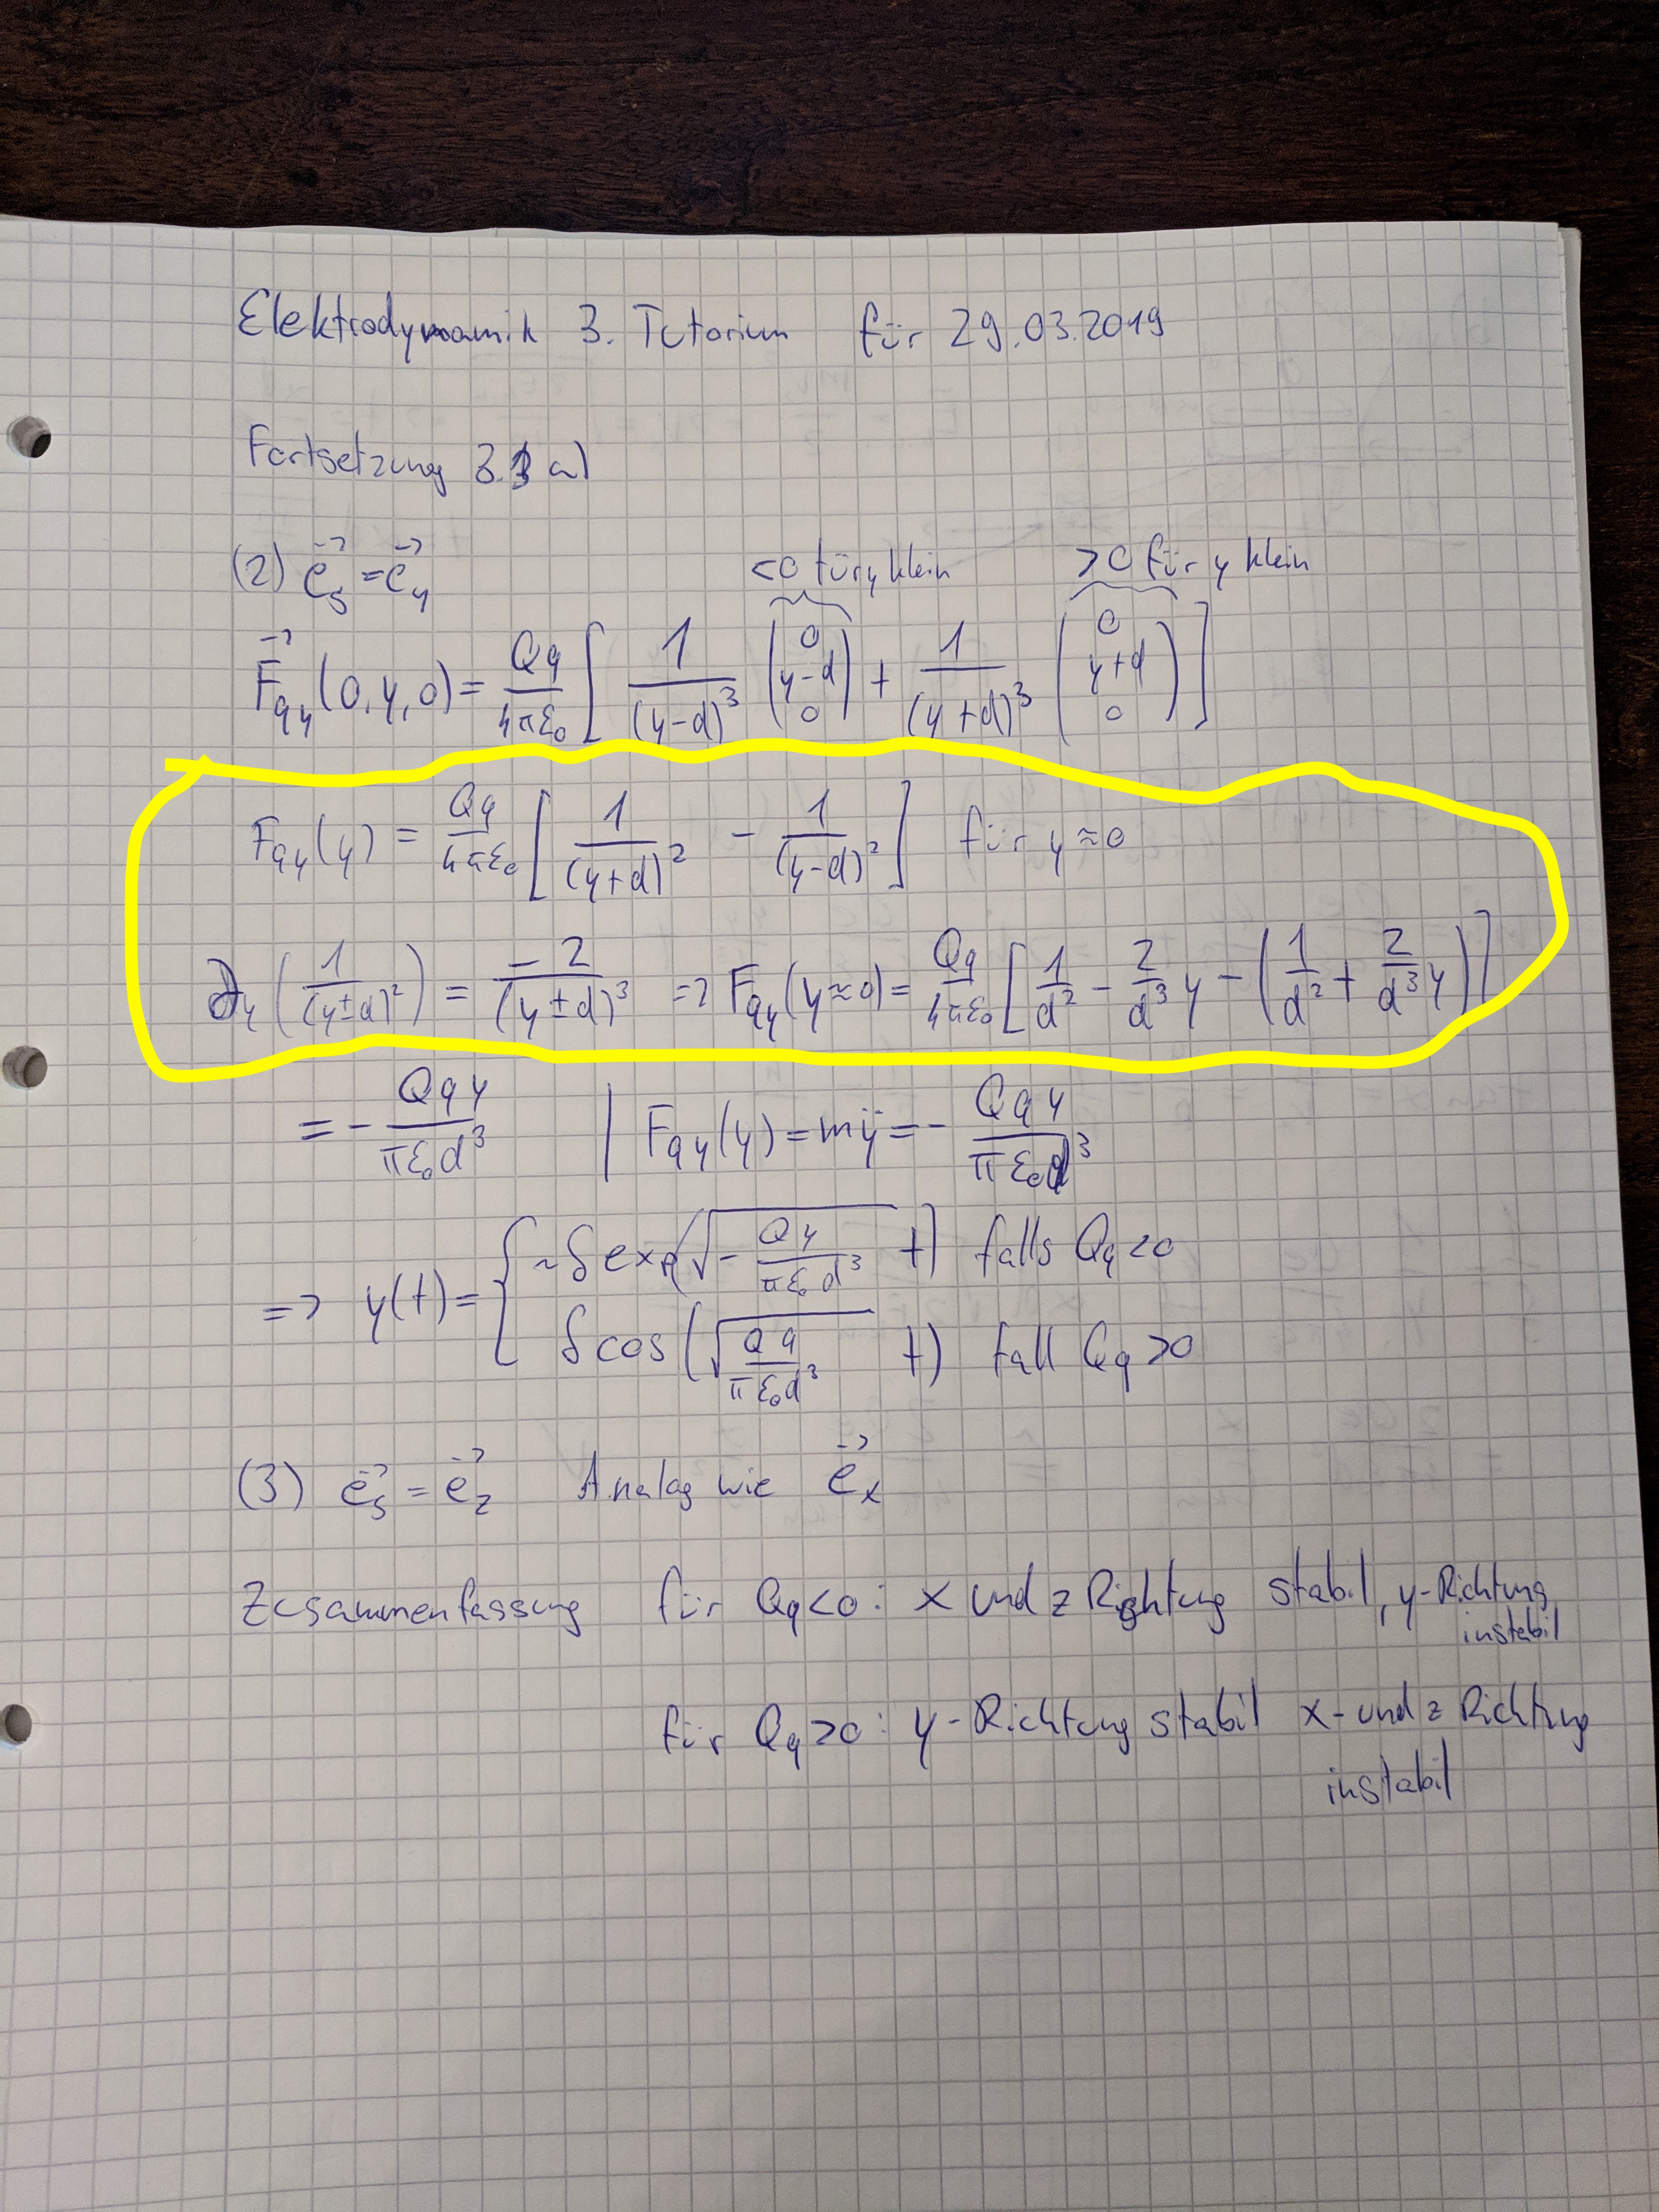 Elektrodynamik 3. Tutorium für 29.03.2019
Fortsetzung 3.1 a)
(2) e⃗_s = e⃗_y
<0 für y klein >0 für y klein
F⃗_qy(0,y,0) = Qq/(4πε₀) [ 1/(y-d)³ (0, y-d, 0) + 1/(y+d)³ (0, y+d, 0) ]
F_qy(y) = Qq/(4πε₀) [ 1/(y+d)² - 1/(y-d)² ] für y≈0
∂_y (1/(y±d)²) = -2/(y±d)³ => F_qy(y≈0) = Qq/(4πε₀) [ 1/d² - 2/d³ y - (1/d² + 2/d³ y) ]
= - Qqy/(πε₀d³) | F_qy(y) = mÿ = - Qqy/(πε₀d³)
=> y(t) = {
~δ exp(√(-Qq/(πε₀d³)) t) falls Qq<0
δ cos(√(Qq/(πε₀d³)) t) fall Qq>0
(3) e⃗_s = e⃗_z Analog wie e⃗_x
Zusammenfassung für Qq<0: x und z Richtung stabil, y-Richtung
instabil
für Qq>0: y-Richtung stabil x- und z Richtung
instabil